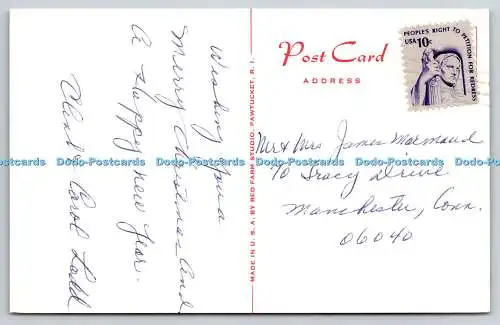 Wishing you a
Merry Christmas and
A Happy new Year.
Carol Ladd
MADE IN U. S. A. BY RED FARM STUDIO, PAWTUCKET, R. I.
Post Card
ADDRESS
PEOPLE'S RIGHT TO PETITION FOR REDRESS
USA 10c
Mr & Mrs James
Tracy Drive
Manchester, Conn.
06040
Dodo-Postcards Dodo-Postcards Dodo-Postcards Dodo-Postcards Dodo-Postcards